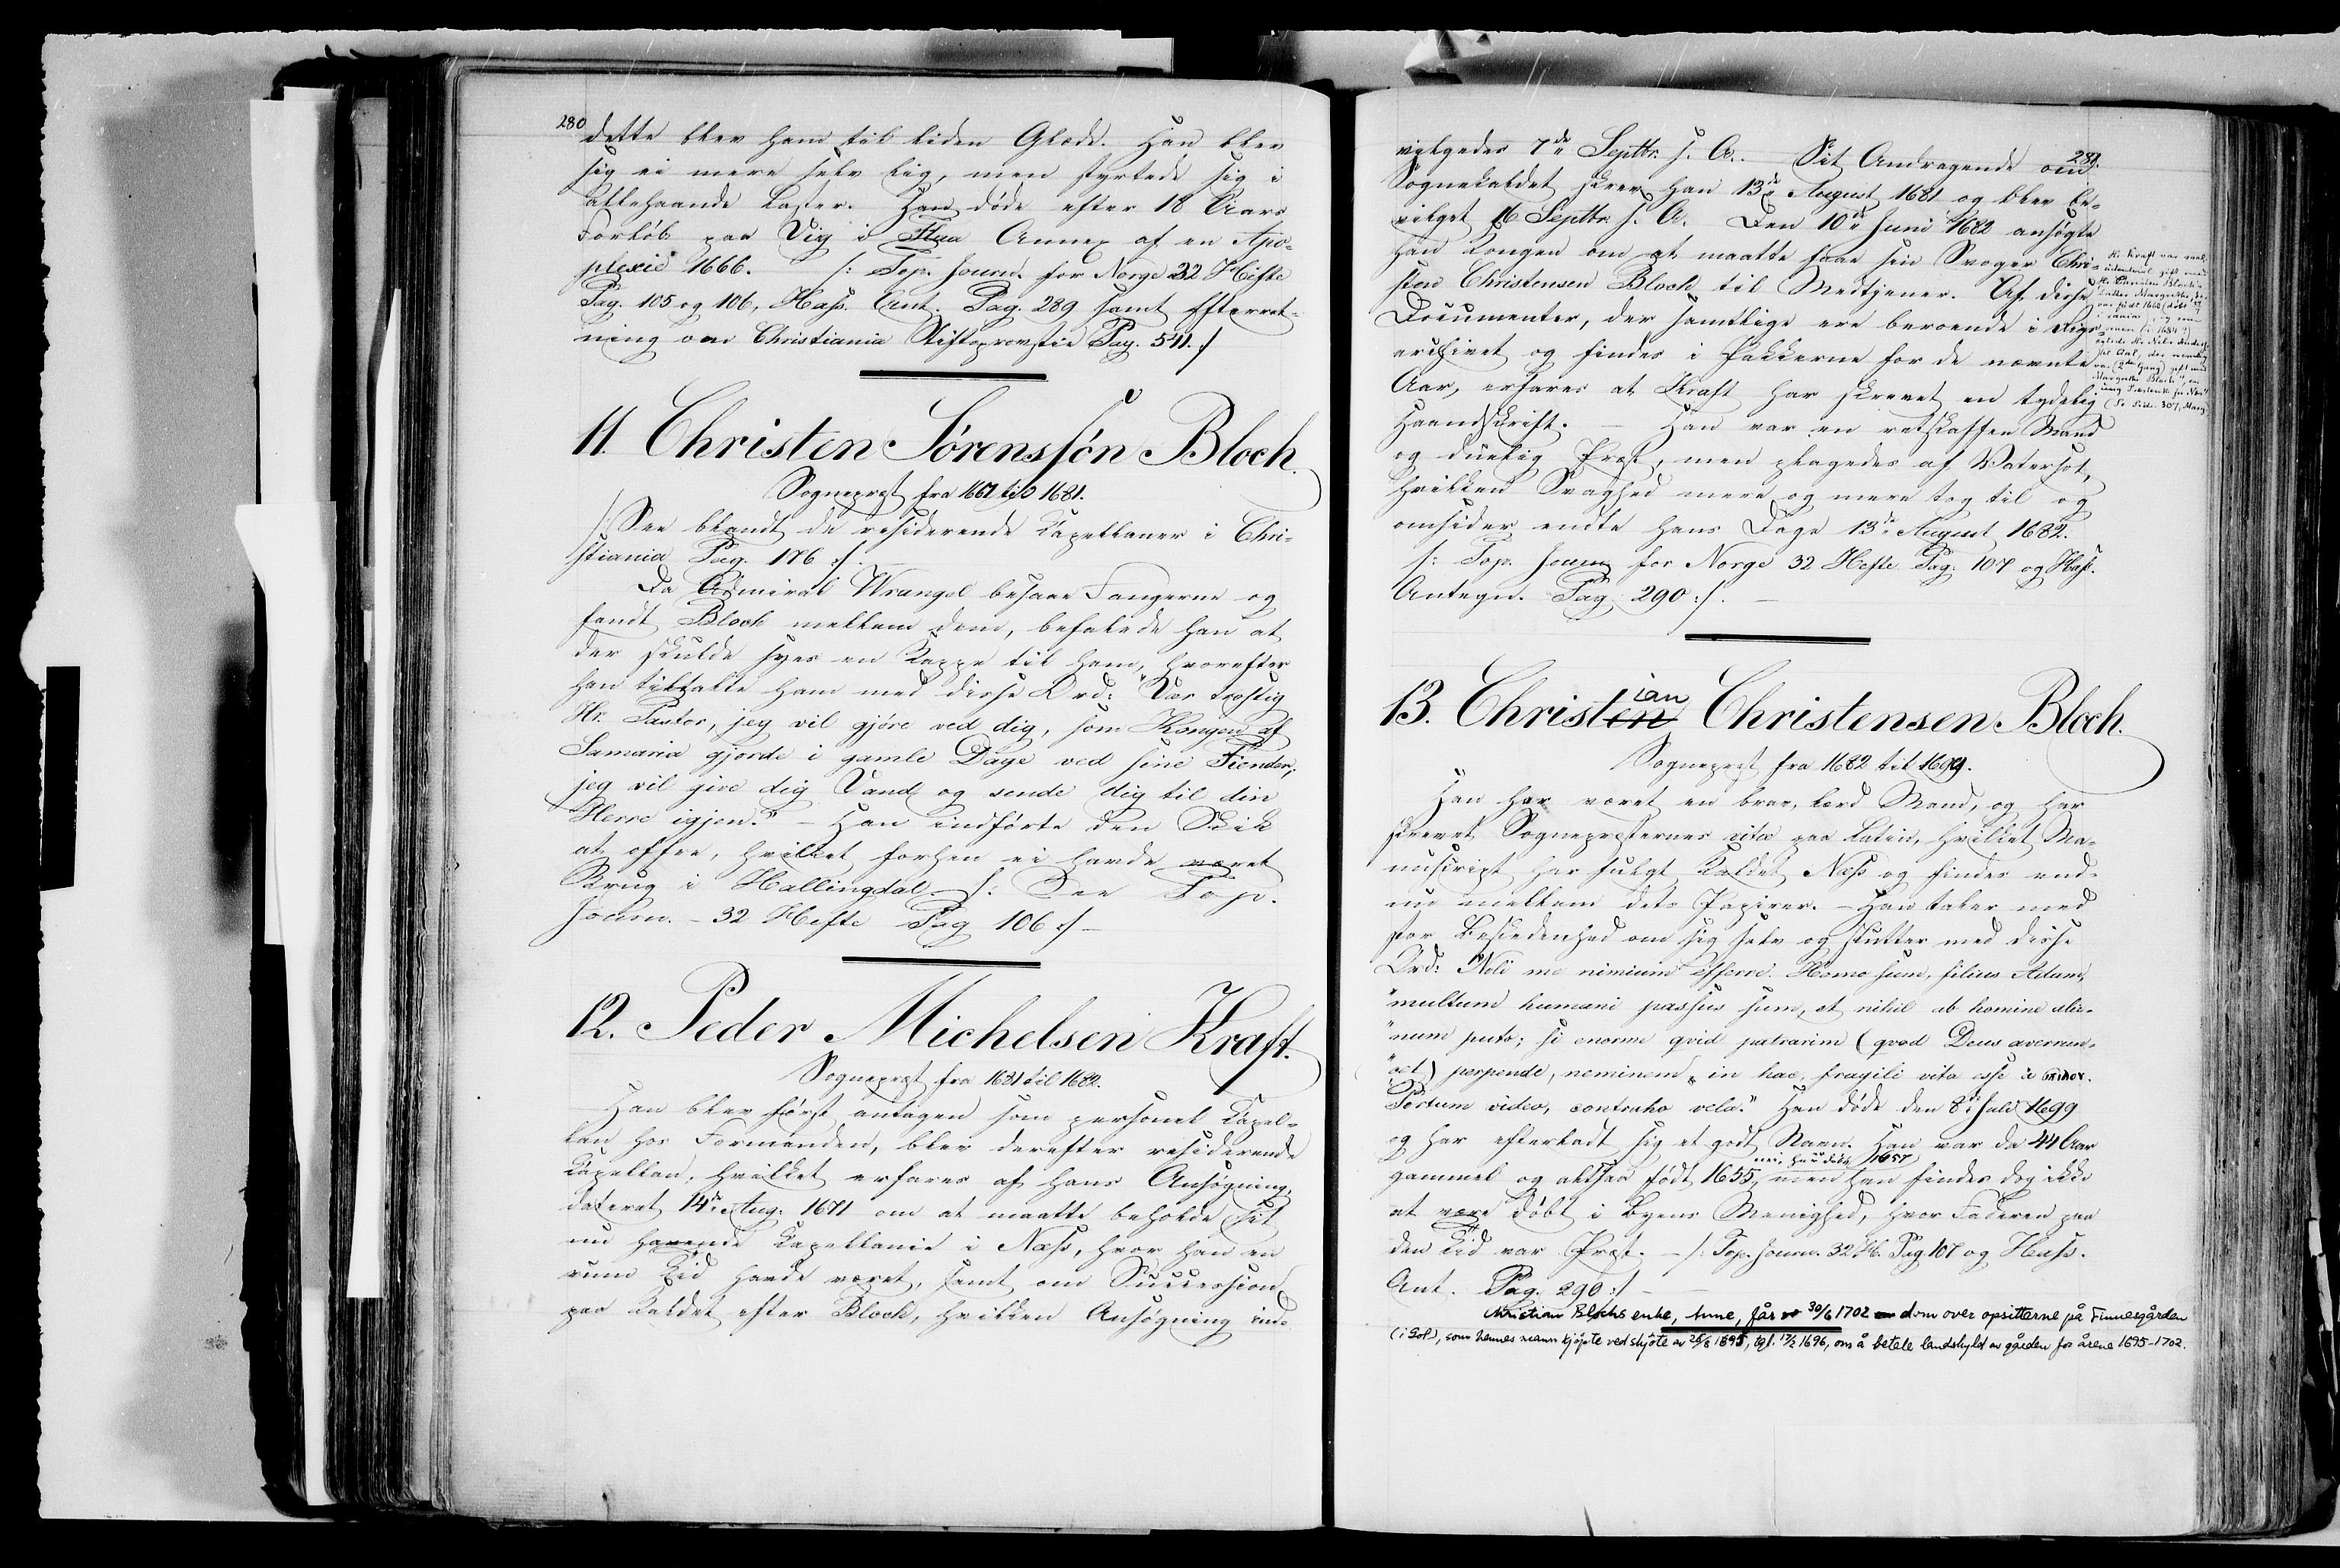 280
dette blev ham til liden Glæde. Han blev
sig ei mere selv lig, men styrtede sig i
allehaande Laster. Han døde efter 18 Aars
Forløb paa Vig i Flaa Annex af en Apo-
plexie 1666. /: Top. Journ. for Norge 32 Hefte
Pag. 105 og 106, Hass. Ant. Pag. 289 samt Efterret-
ning om Christiania Stiftsprovstie Pag. 541. :/
11. Christen Sørenssøn Bloch.
Sognepræst fra 1667 til 1681.
/: See blandt de residerende Kapellaner i Chri-
stiania Pag. 176 :/. —
Da Admiral Wrangel besaae Fangerne og
fandt Bloch mellem dem, befalede han at
der skulde syes en Kappe til ham, hvorefter
han tiltalte ham med disse Ord: "Vær trøstig
Hr. Pastor, jeg vil gjøre ved dig, som Kongen af
Samaria gjorde i gamle Dage ved sine Fiender;
jeg vil give dig Vand og sende dig til din
Herre igjen." — Han indførte den Skik
at offre, hvilket forhen ei havde været
Brug i Hallingdal /: See Top.
Journ. – 32 Hefte Pag 106 :/ –
12. Peder Michelsen Kraft.
Sognepræst fra 1681 til 1682.
Han blev først antagen som personel Kapel-
lan hos Formanden, blev derefter residerende
Kapellan, hvilket erfares af hans Ansøgning,
dateret 14de Aug. 1671 om at maatte beholde sit
nu havende Kapellanie i Næss, hvor han en
rum Tid havde været, samt om Succession
paa Kaldet efter Bloch, hvilken Ansøgning ind-
281.
vilgedes 7de Septbr. s. A. Sit Andragende om
Sognekaldet skrev han 13de August 1681 og blev be-
vilget 16 Septbr. s. A. Den 10de Juni 1682 ansøgte
han Kongen om at maatte faae sin Svoger Chri-
sten Christensen Bloch til Medtjener. Af disse
Documenter, der samtlige ere beroende i Rigs-
archivet og findes i Pakkerne for de nævnte
Aar, erfares at Kraft har skrevet en tydelig
Haandskrift. — Han var en retskaffen Mand
og duelig Præst, men plagedes af Watersot,
hvilken Svaghed mere og mere tog til og
omsider endte hans Dage 13de August 1682.
/: Top. Journ for Norge 32 Hefte Pag. 107 og Hass.
Antegn. Pag. 290 :/. —
Hr. Kraft var
gift med
Hr. Christen Bloch's
Datter Margrethe,
13. Christen ian Christensen Bloch.
Sognepræst fra 1682 til 1699.
Han har været en brav, lærd Mand, og har
skrevet Sognepræsternes vita paa Latin, hvilket Ma-
nuscript har fulgt Kaldet Næss og findes end-
nu mellem dets Papirer. — Han taler med
stor Beskedenhed om sig selv og slutter med disse
Ord: "Noli me nimium efferre. Homo sum, filius Adami,
"multum humani passus sum, et nihil ab homine alie-
"num puto; si enorme qvid patrarim (qvod Deus averrun-
"cet) perpende, neminem in hac fragili vita esse
Portum video, contraho vela." Han døde den 8de Juli 1699
og har efterladt sig et godt Navn. Han var da 44 Aar
gammel og altsaa født 1655, men han findes dog ikke
nei, han døbt 1657
at være døbt i Byens Menighed, hvor Faderen paa
den Tid var Præst. — /: Top. Journ. 32 H. Pag 107 og Hass.
Ant. Pag. 290 :/ —
Christian Blochs enke, Anne, får 30/6 1702 dom over opsitterne på Finnesgården
(i Gol), som hennes mann kjøpte ved skjøte av 26/8 1695, tgl. 17/2 1696, om å betale landskyld av gården for årene 1695-1702.